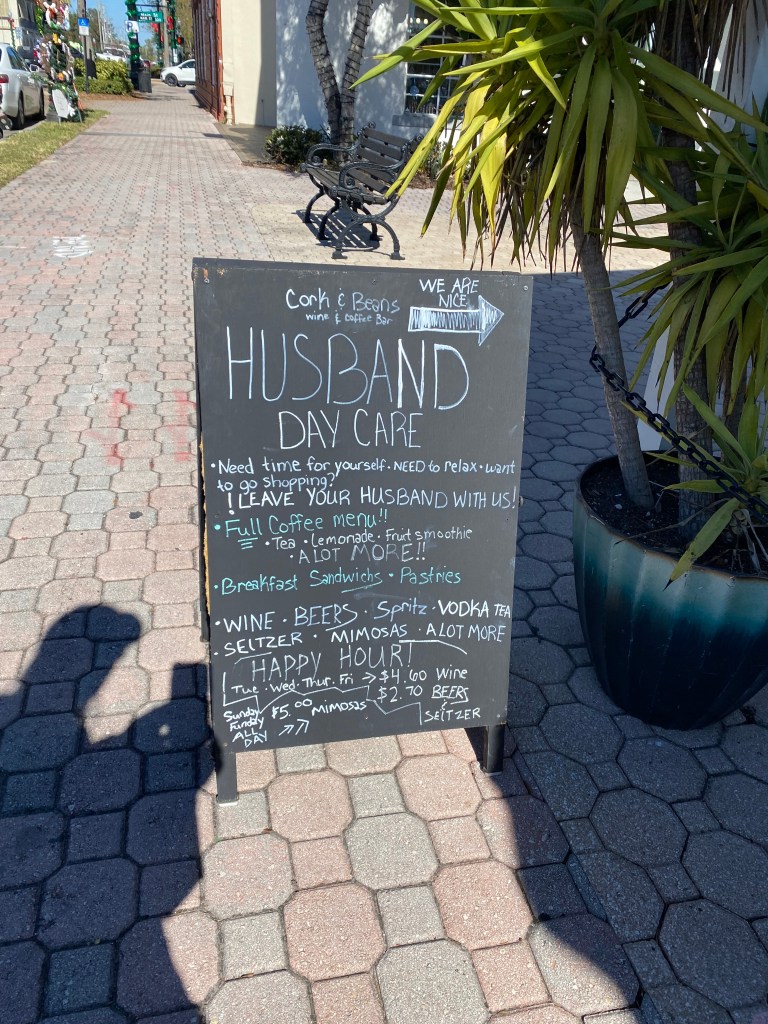 Cork & Beans
wine & coffee Bar
WE ARE
NICE
HUSBAND
DAY CARE
• Need time for yourself • NEED to relax • want
to go shopping?
! LEAVE YOUR HUSBAND WITH US!
• Full Coffee menu!!
• Tea • Lemonade • Fruit smoothie
• A LOT MORE!!
• Breakfast Sandwichs • Pastries
• WINE • BEERS • Spritz • VODKA TEA
• SELTZER • MIMOSAS • A LOT MORE
HAPPY HOUR!
Tue • Wed • Thur • Fri → $4.60 Wine
$2.70 BEERS
&
SELTZER
Sunday
Funday
ALL
DAY
$5.00 MIMOSAS